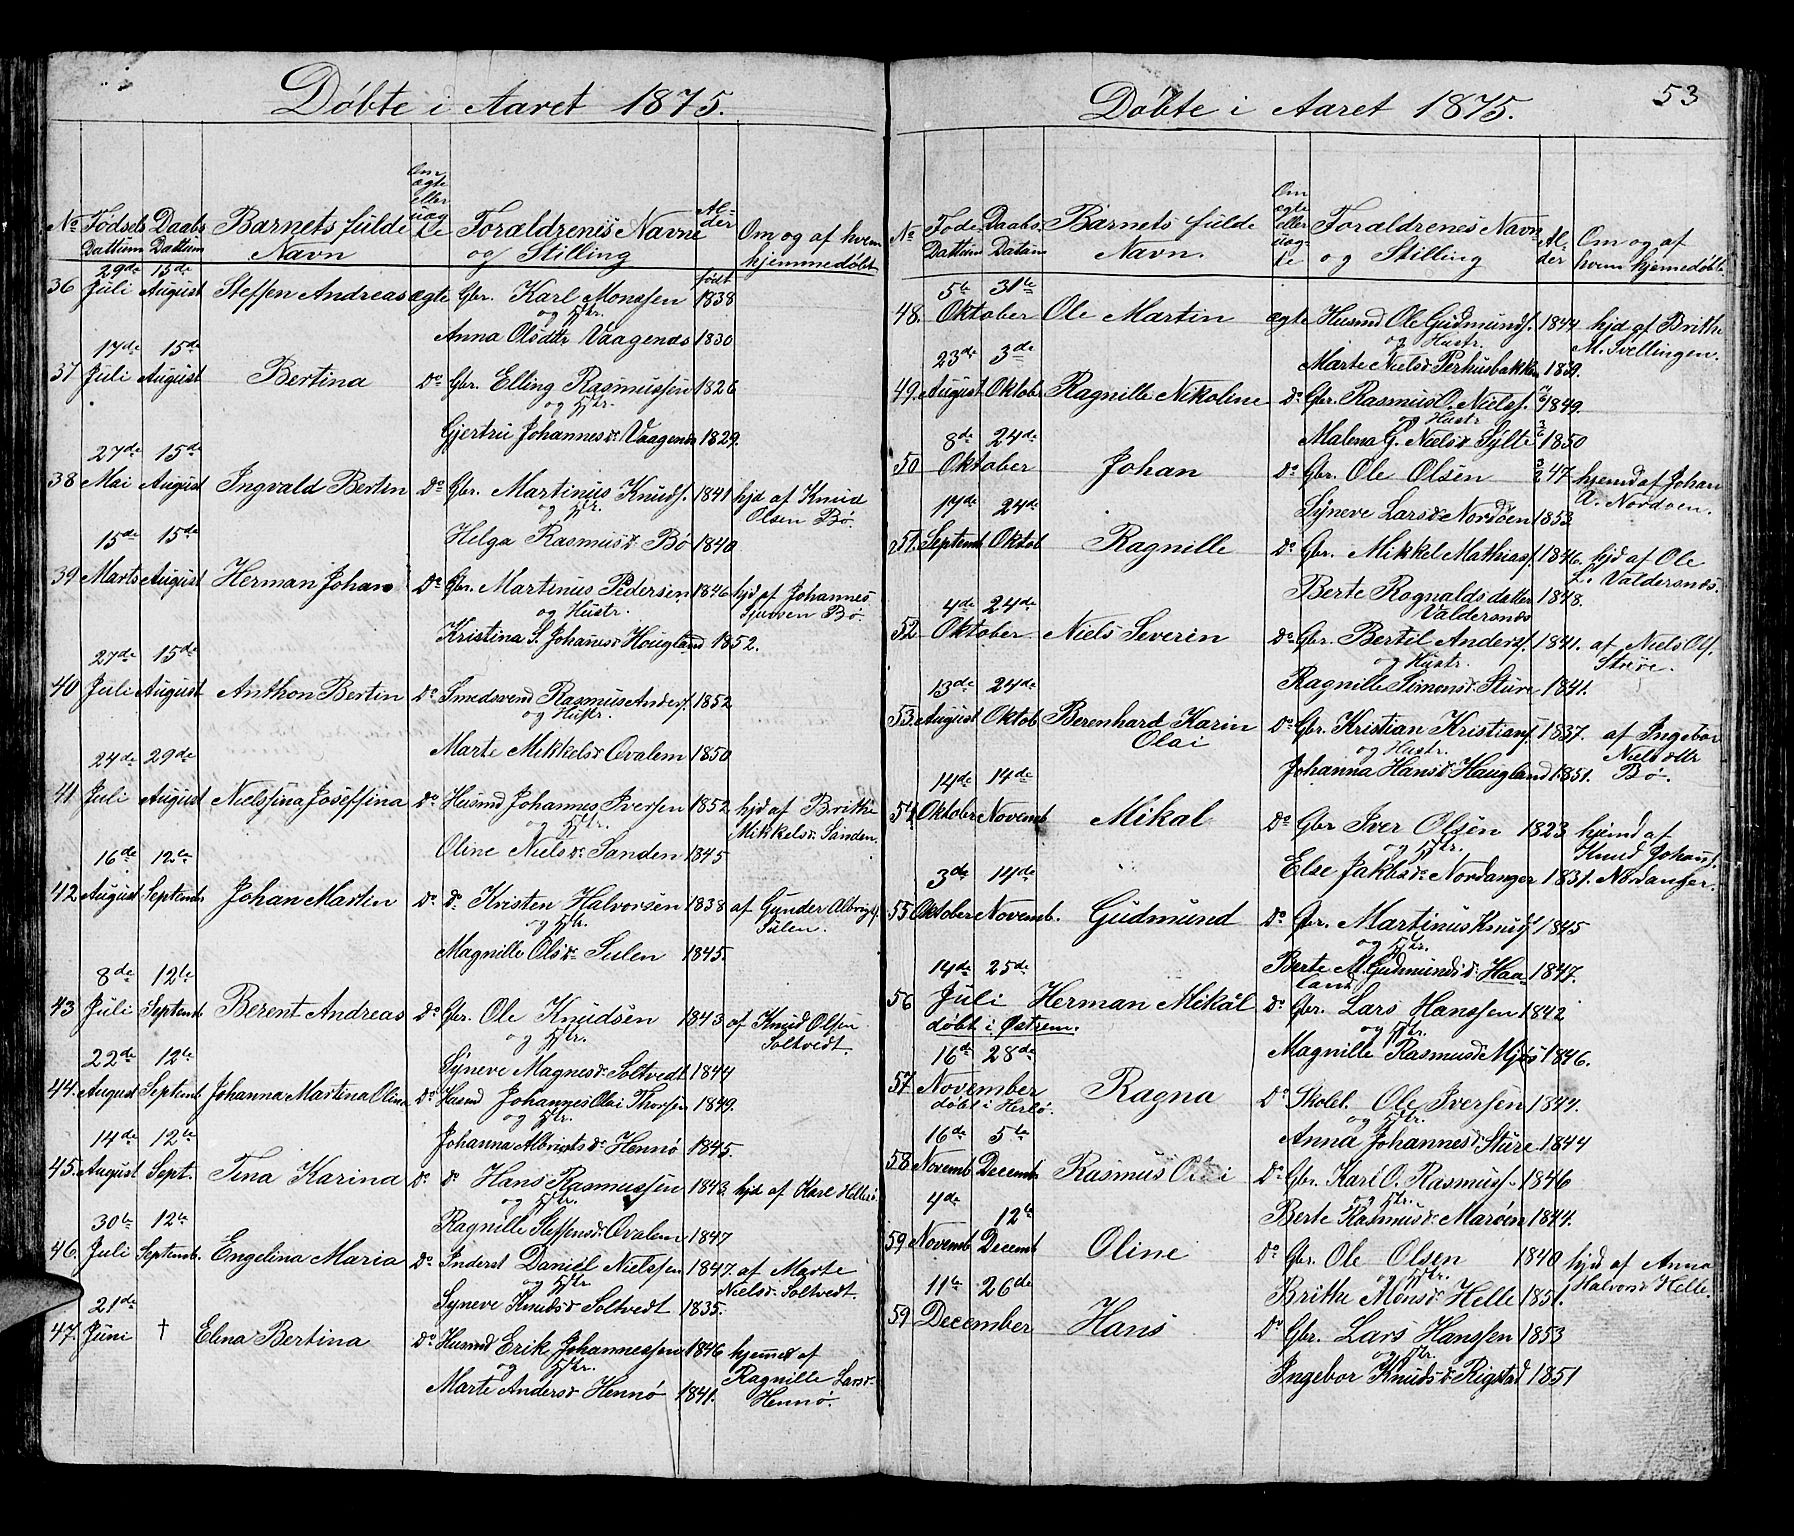 Døbte i Aaret 1875.
No Fødsels Dattum Daabs Dattum Barnets fulde Navn Om ægte eller uægte Foraldrenes Navne og Stilling Alder Om og af hvem hjemmedøbt
født
36 29de Juli 15de August Steffen Andreas ægte Gbr. Karl Monssen 1838
og Hstr.
Anna Olsdtr Vaagenæs 1830
37 17de Juli 15de August Bertina Do Gbr. Elling Rasmussen 1826
og Hstr.
Gjertru Johannesd. Vaagenæs 1829
38 27de Mai 15de August Ingvald Bertin Do Gbr. Martinus Knuds. 1841 hjd af Knud
og Hstr. Olsen Bø.
Helga Rasmusd. Bø 1840
39 15de Marts 15de August Herman Johan Do Gbr. Martinus Pedersen 1846 hjd af Johannes
og Hustr. Bø.
Kristina S. Johanesd. Hougland 1852.
40 27de Juli 15de August Anthon Bertin Do Smedsvend Rasmus Anders. 1852
og Hustr.
Marte Mikkelsd. Qvalem 1850
41 24de Juli 29de August Nielssina Joseffina Do Husmd Johannes Iversen 1852 hjd af Brithe
og Hstr. Mikkelsd. Sanden.
Oline Nielsd. Sanden 1845
42 16de August 12te Septemb. Johan Martin Do do Kristen Halvorsen 1838 af Gunder Albrigts.
og Hstr. Sulen.
Magnille Olsd. Sulen 1845.
43 8de Juli 12te Septemb. Berent Andreas Do Gbr. Ole Knudsen 1843 af Knud Olsen
og Hstr. Soltvedt.
Syneve Magnesd. Soltvedt 1844
44. 22de August 12te Septemb. Johanna Martina Olina Do Husmd Johannes Olai Thorsen 1849.
og Hstr.
Johanna Albrigtsd. Hennø 1845.
45. 14de August 12te Sept. Tina Karina Do do Hans Rasmussen 1843. hjd af Karl Hellesø
og Hstr.
Ragnille Steffensd. Qvalem 1847
46. 30te Juli 12te Septemb. Engelina Maria Do Inderst Daniel Nielssen 1847. af Marte
og Hstr. Nielsd. Soltvedt.
Syneve Knudsd. Soltvedt 1835.
47. 21de Juni † Elena Bertina Do Husmd Erik Johannessen 1846 hjemmed af
og Hstr. Ragnille Larsd.
Marte Andersd. Hennø 1841. Hennø.
Døbte i Aaret 1875.
53
No Føde Dattum Daabs Datum Barnets fulde Navn. Om ægte eller uægte Foraldrenes Navn og Stilling Alder Om og af hvem hjemedøbt
48. 5te 31te Oktober Ole Martin ægte Husmd Ole Gudmunds. 1844 hjd af Brithe
og Hustr. M. Svellingen.
Marte Nielsd. Perhusbakken 1839.
49. 23de August 3de Oktober Ragnille Nikoline Do Gbr. Rasmus O. Niels. 1849.
og Hustr
Malena G. Nielsd. Sylte 1850
50 8de 24de Oktober Johan Do Gbr. Ole Olsen 47. hjemd af Johan
A. Nordøen.
Syneve Larsd. Nordøen 1853
51. 17de Septemb 24de Oktob Ragnille Do Gbr. Mikkel Mathias. 1846. hjd af Ole
Valdersnæs.
Berte Rognaldsdatter 1848.
Valdersnæs
52. 4de 24de Oktober Niels Severin Do Gbr. Bertil Anders. 1841. af Niels Ols.
og Hustr. Sture.
Ragnille Simonsd. Sture 1841.
53. 13de August 24de Oktob Berenhard Karin Do Gbr. Kristian Kristians. 1837. af Ingebor
Olai og Hustr. Nielsdtr
Johanna Hansd. Haugland 1851. Bø.
54 14de Oktober 14de Novemb Mikal Do Gbr Iver Olsen 1823 hjemd af
og Hstr. Knud Johans.
Else Jakobsd. Nordanger 1831. Nordanger.
55 3de Oktober 14de Novemb. Gudmund Do Gbr. Martinus Knuds. 1845
og Hstr.
Berte M. Gudmundsd. Haa- 1847.
land
56 14de 25de Juli Herman Mikal Do Gbr. Lars Hanssen 1842
døbt i Østrem. og Hstr.
Magnille Rasmusd. Mjøs 1846.
57. 16de 28de November Ragna Do Skolel. Ole Iversen 1844.
døbt i Herlø. og Hstr.
Anna Johannesd. Sture 1844
58. 16de Novemb 5te Decemb. Rasmus Olai Do Gbr. Karl O. Rasmuss. 1846
og Hstr.
Berte Rasmusd. Marøen 1844.
59 4de Novemb 12te Decemb Oline Do Gbr. Ole Olsen 1840 hjd af Anna
og Hstr. Halvorsd. Helle.
Brithe Monsd. Helle 1851.
59 11te 26de December Hans Do Gbr. Lars Hanssen 1853
og Hstr.
Ingebor Knudsd. Rigstad 1851